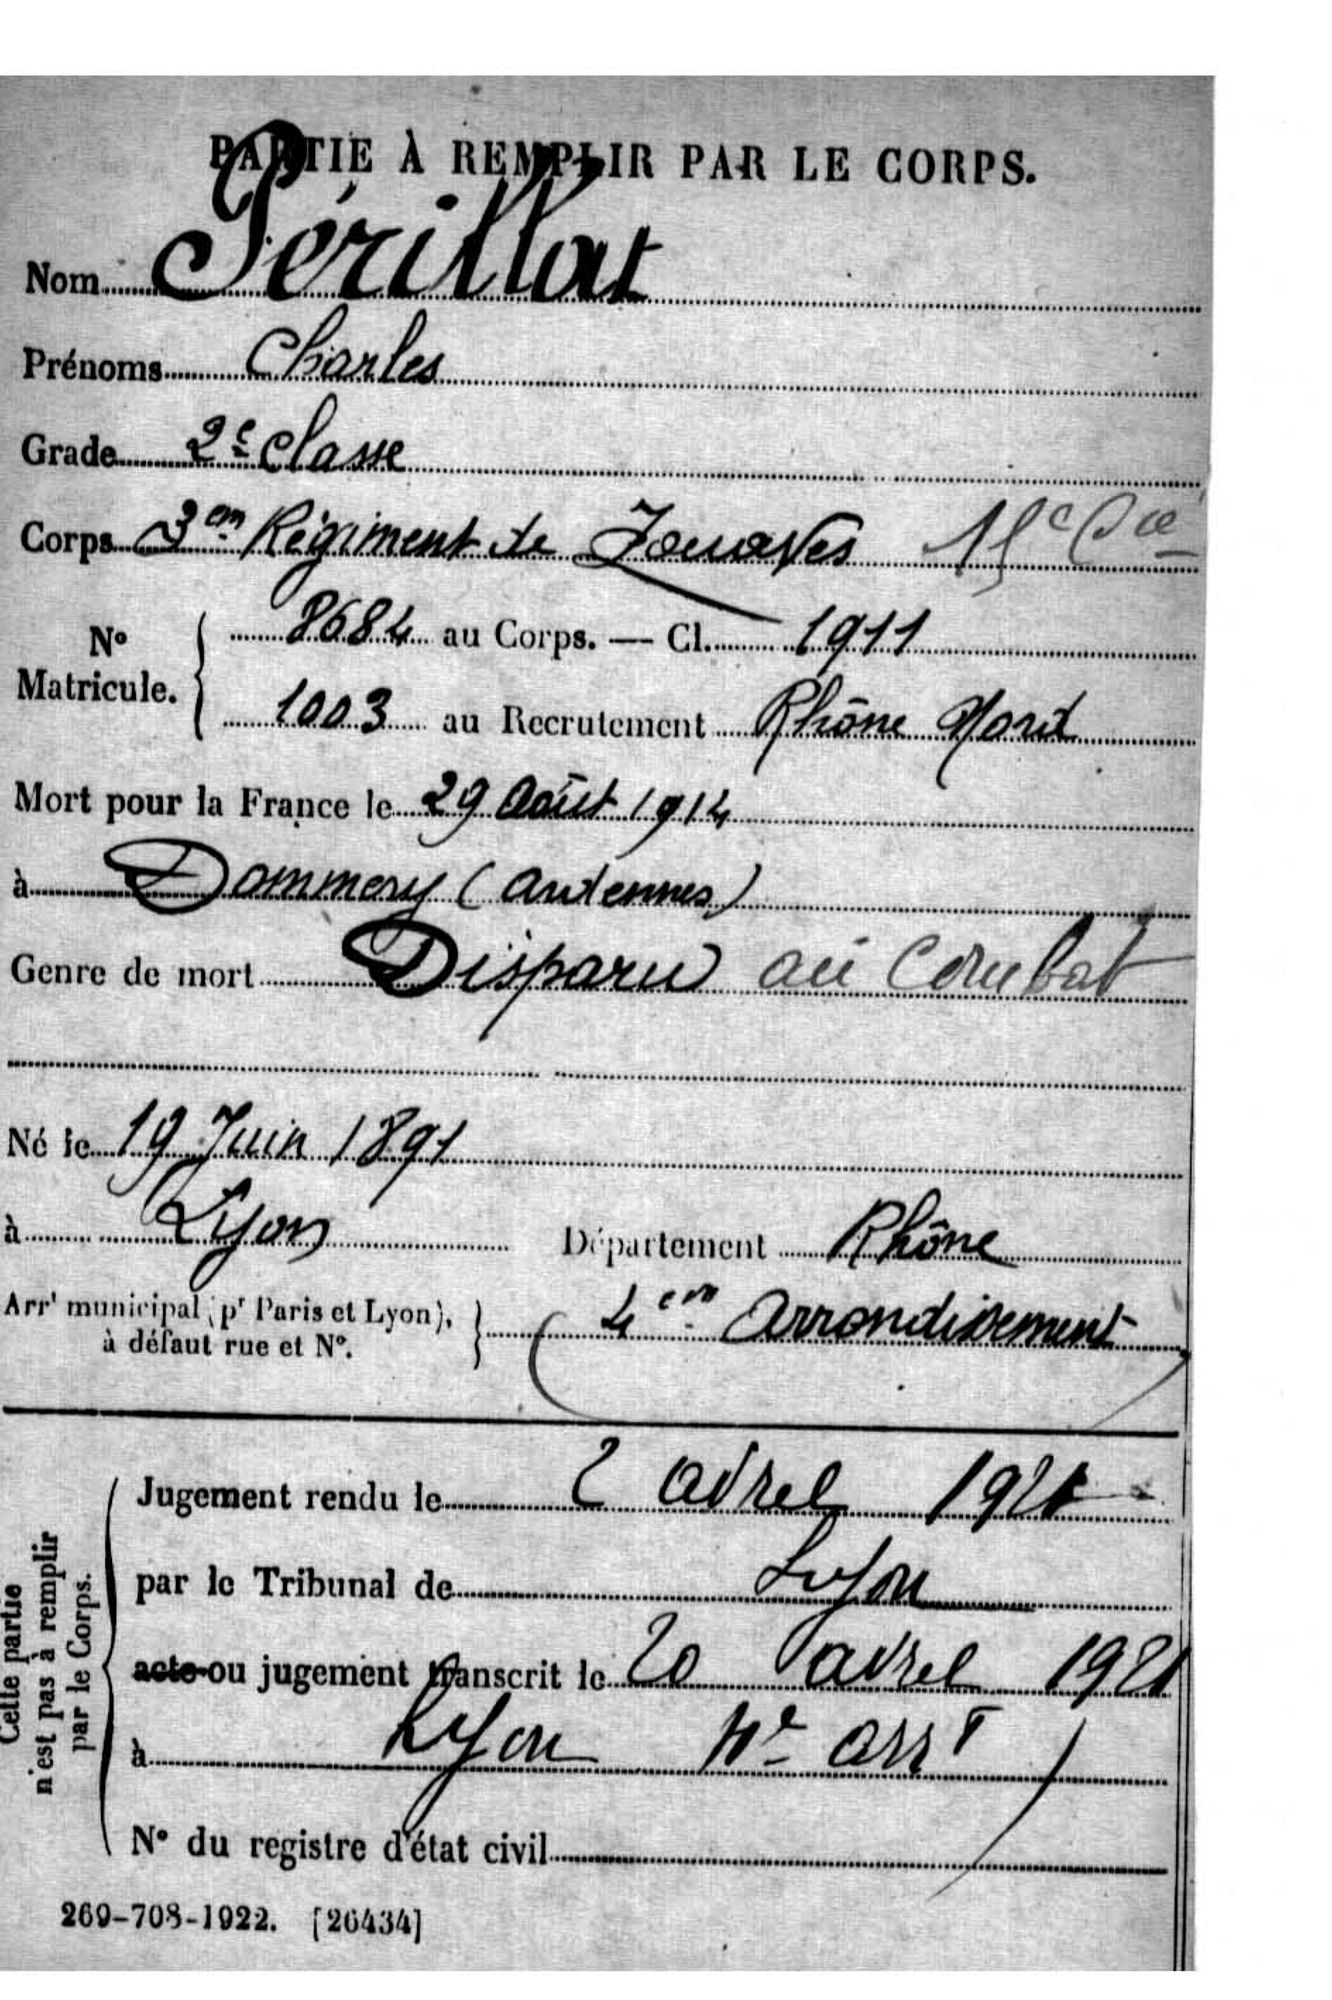 PARTIE À REMPLIR PAR LE CORPS.
Nom Périllat
Prénoms Charles
Grade 2e Classe
Corps 3em Régiment de Zouaves 15e Cie
No Matricule. 8684 au Corps. — Cl. 1911
1003 au Recrutement Rhône Nord
Mort pour la France le 29 Août 1914
à Dommery (Ardennes)
Genre de mort Disparu au Combat
Né le 19 Juin 1891
à Lyon Département Rhône
Arrt municipal (pr Paris et Lyon), à défaut rue et No. 4em Arrondissement
Cette partie n'est pas à remplir par le Corps.
Jugement rendu le 2 avril 1921
par le Tribunal de Lyon
acte ou jugement transcrit le 20 avril 1921
à Lyon 4e arrt
No du registre d'état civil
269-708-1922. [26434]